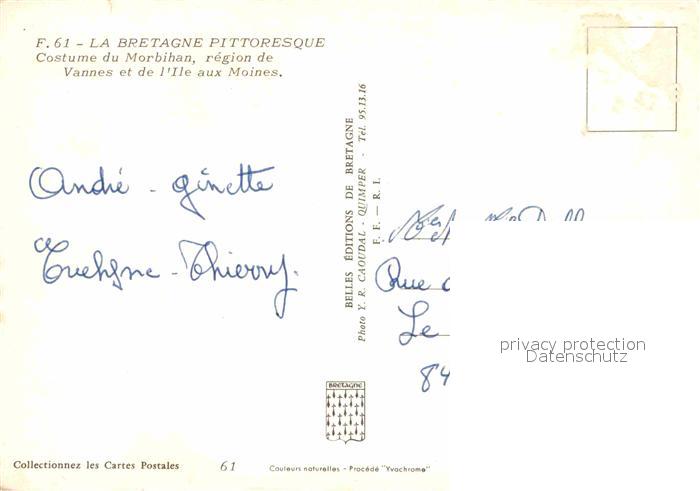 F. 61 - LA BRETAGNE PITTORESQUE
Costume du Morbihan, région de
Vannes et de l'Ile aux Moines.
André - ginette
Thierry.
BELLES ÉDITIONS DE BRETAGNE
Photo Y. R. CAOUDAL - QUIMPER - Tél. 95.13.16
F. F. — R. I.
Rue
Le
84
privacy protection
Datenschutz
BRETAGNE
Collectionnez les Cartes Postales
61
Couleurs naturelles - Procédé "Yvachrome"